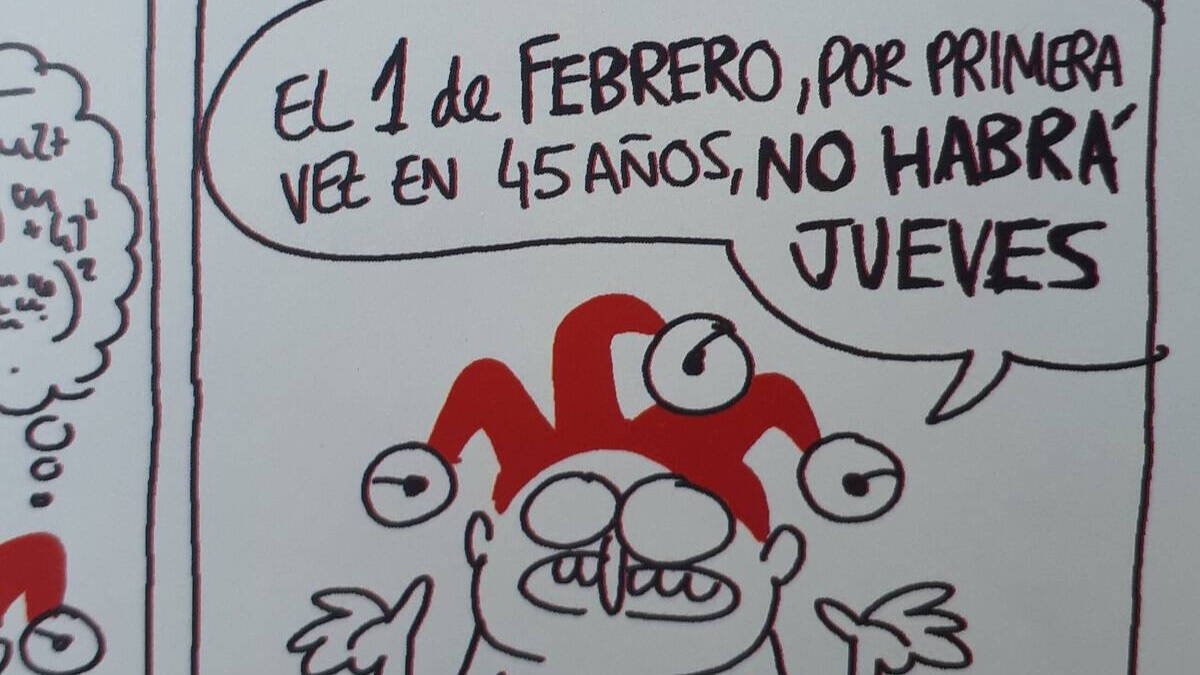 EL 1 de FEBRERO, POR PRIMERA
VEZ EN 45 AÑOS, NO HABRÁ
JUEVES